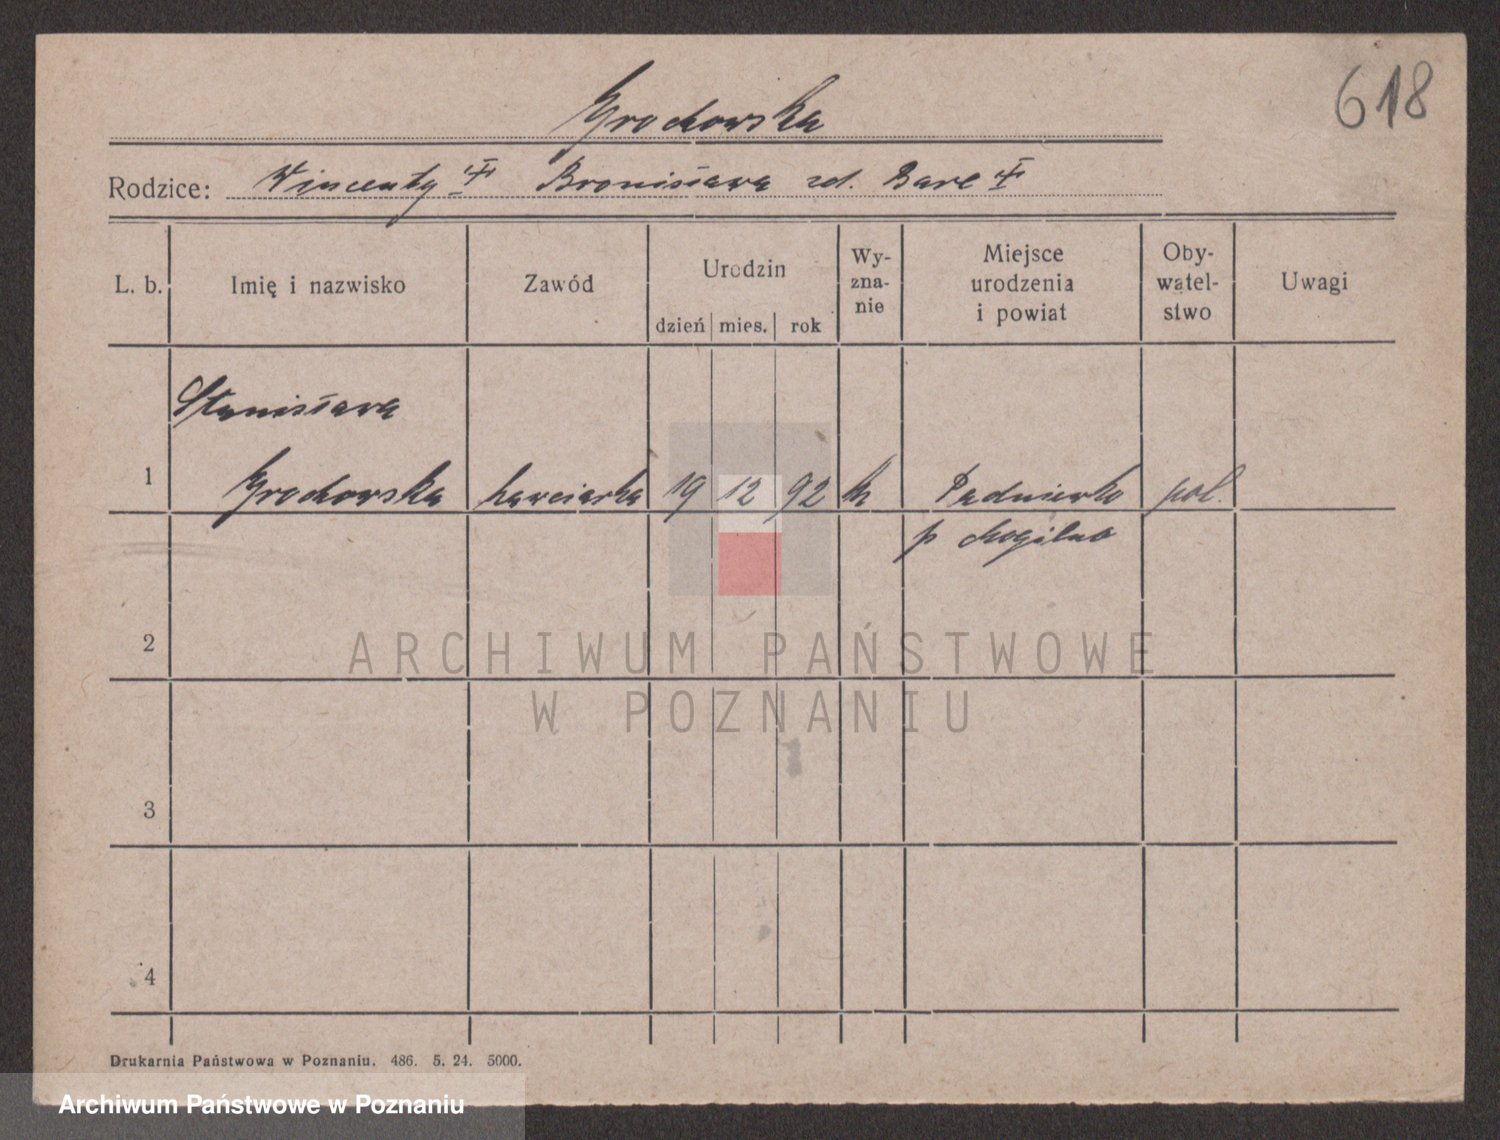 618
Grochowska
Rodzice: Wincenty Bronisława zd.
L. b. Imię i nazwisko Zawód Urodzin dzień mies. rok Wy-zna-nie Miejsce urodzenia i powiat Oby-watel-stwo Uwagi
Stanisława
1 Grochowska hawciarka 19 12 92 k Padniewko pol.
p Mogilno
2
ARCHIWUM PAŃSTWOWE
W POZNANIU
3
4
Drukarnia Państwowa w Poznaniu. 486. 5. 24. 5000.
Archiwum Państwowe w Poznaniu